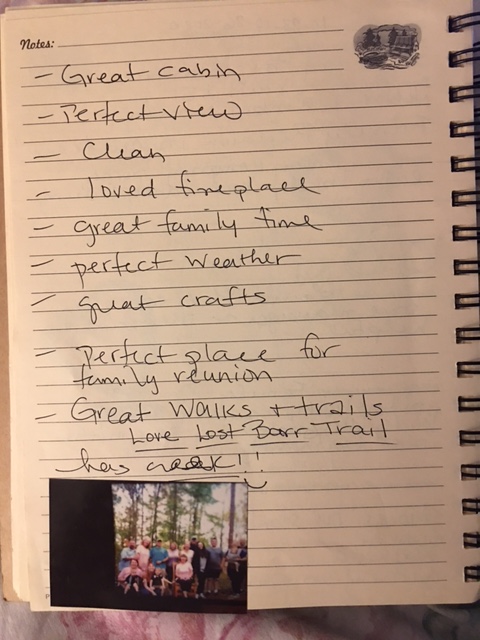 Notes:
- Great cabin
- Perfect view
- Clean
- loved fireplace
- great family time
- perfect weather
- great crafts
- Perfect place for
family reunion
- Great Walks + trails
Love Lost Barr Trail
has creek!!